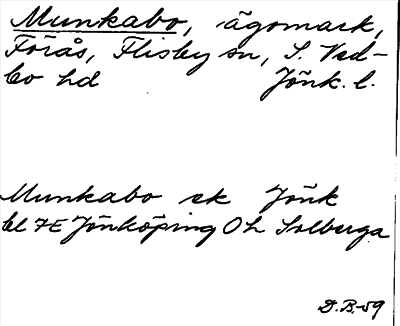 Munkabo, ägomark,
Förås, Flisby sn, S. Ved-
bo hd Jönk. l.
Munkabo ek Jönk
bl 7E Jönköping Oh Solberga
D.B.-59